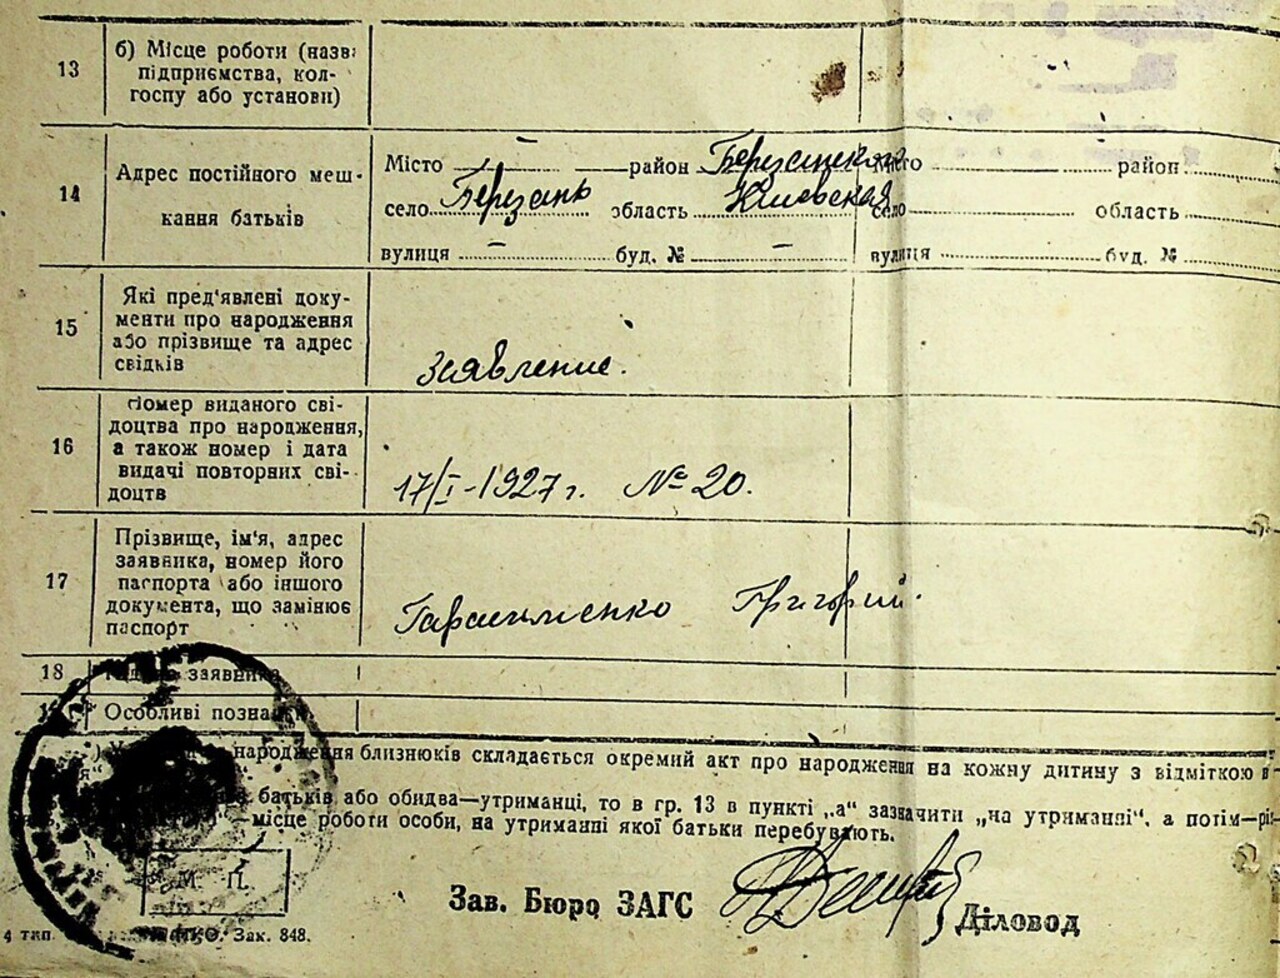 13 б) Місце роботи (назва
підприємства, кол-
госпу або установи)
14 Адрес постійного меш-
кання батьків
Місто — район Березанский Місто район
село Березань область Киевская село область
вулиця — буд. № — вулиця буд. №
15 Які пред'явлені доку-
менти про народження
або прізвище та адрес
свідків
заявление.
16 Номер виданого сві-
доцтва про народження,
а також номер і дата
видачі повторних сві-
доцтв
17/I-1927 г. № 20.
17 Прізвище, ім'я, адрес
заявника, номер його
паспорта або іншого
документа, що замінює
паспорт
Герасименко Григорий.
18 заявника
Особливі позначки
народження близнюків складається окремий акт про народження на кожну дитину з відміткою в
батьків або обидва—утриманці, то в гр. 13 в пункті „а" зазначити „на утриманні", а потім—
—місце роботи особи, на утриманні якої батьки перебувають.
М П.
Зав. Бюро ЗАГС Діловод
4 тип. Зак. 848.